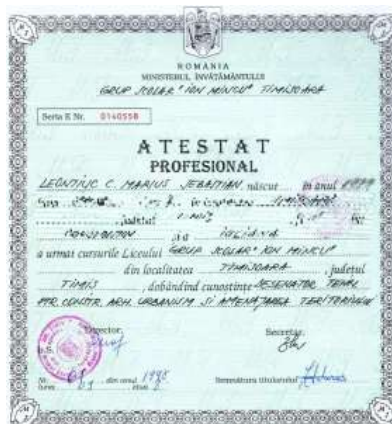 ROMÂNIA
MINISTERUL ÎNVĂŢĂMÂNTULUI
GRUP ŞCOLAR "ION MINCU" TIMIŞOARA
Seria E Nr. 0140558
ATESTAT
PROFESIONAL
LEONTIUC C. MARIUS SEBASTIAN născut în anul
localitatea TIMIŞOARA
judeţul TIMIŞ
CONSTANTIN şi a IULIANA
a urmat cursurile Liceului GRUP ŞCOLAR "ION MINCU"
din localitatea TIMIŞOARA, judeţul
TIMIŞ, dobândind cunoştinţe DESENATOR TEHN.
PTR. CONSTR. ARH. URBANISM ŞI AMENAJAREA TERITORIULUI
Director,
Secretar,
L.S.
Nr. 61 din anul 1998
luna
Semnătura titularului